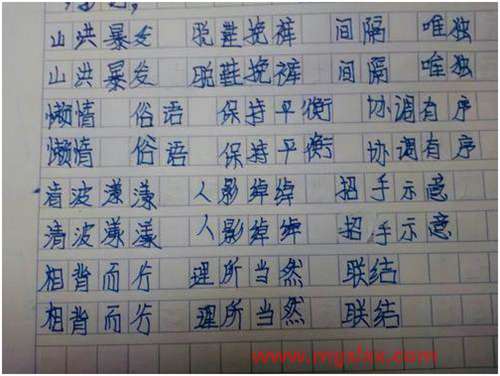 山洪暴发 脱鞋挽裤 间隔 唯独
山洪暴发 脱鞋挽裤 间隔 唯独
懒惰 俗语 保持平衡 协调有序
懒惰 俗语 保持平衡 协调有序
清波漾漾 人影绰绰 招手示意
清波漾漾 人影绰绰 招手示意
相背而行 理所当然 联结
相背而行 理所当然 联结
www.mgslax.com